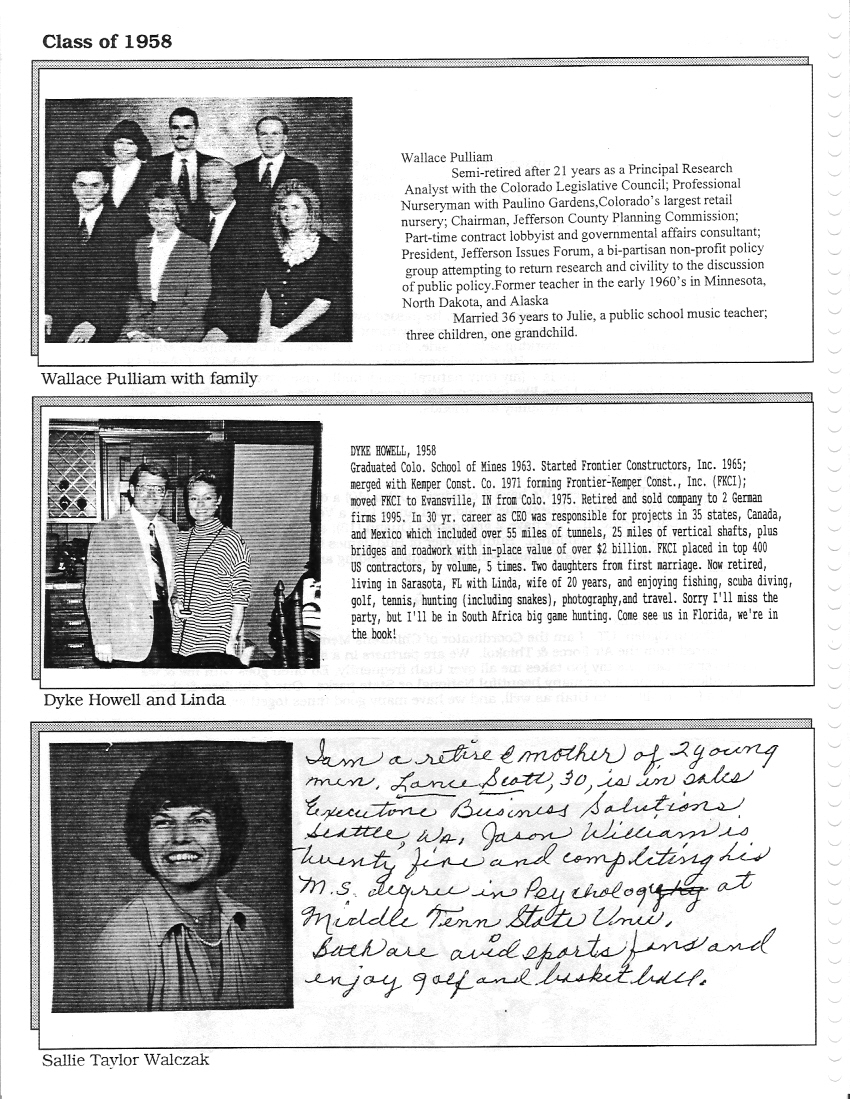 Class of 1958
Wallace Pulliam
Semi-retired after 21 years as a Principal Research
Analyst with the Colorado Legislative Council; Professional
Nurseryman with Paulino Gardens,Colorado's largest retail
nursery; Chairman, Jefferson County Planning Commission;
Part-time contract lobbyist and governmental affairs consultant;
President, Jefferson Issues Forum, a bi-partisan non-profit policy
group attempting to return research and civility to the discussion
of public policy.Former teacher in the early 1960's in Minnesota,
North Dakota, and Alaska
Married 36 years to Julie, a public school music teacher;
three children, one grandchild.
Wallace Pulliam with family
DYKE HOWELL, 1958
Graduated Colo. School of Mines 1963. Started Frontier Constructors, Inc. 1965;
merged with Kemper Const. Co. 1971 forming Frontier-Kemper Const., Inc. (FKCI);
moved FKCI to Evansville, IN from Colo. 1975. Retired and sold company to 2 German
firms 1995. In 30 yr. career as CEO was responsible for projects in 35 states, Canada,
and Mexico which included over 55 miles of tunnels, 25 miles of vertical shafts, plus
bridges and roadwork with in-place value of over $2 billion. FKCI placed in top 400
US contractors, by volume, 5 times. Two daughters from first marriage. Now retired,
living in Sarasota, FL with Linda, wife of 20 years, and enjoying fishing, scuba diving,
golf, tennis, hunting (including snakes), photography,and travel. Sorry I'll miss the
party, but I'll be in South Africa big game hunting. Come see us in Florida, we're in
the book!
Dyke Howell and Linda
I am a retired mother of 2 young
men. Lance Scott, 30, is in sales
Executone Business Solutions
Seattle, Wa. Jason William is
twenty five and completing his
M.S. degree in Psychology at
Middle Tenn State Univ.
Both are avid sports fans and
enjoy golf and basketball.
Sallie Taylor Walczak